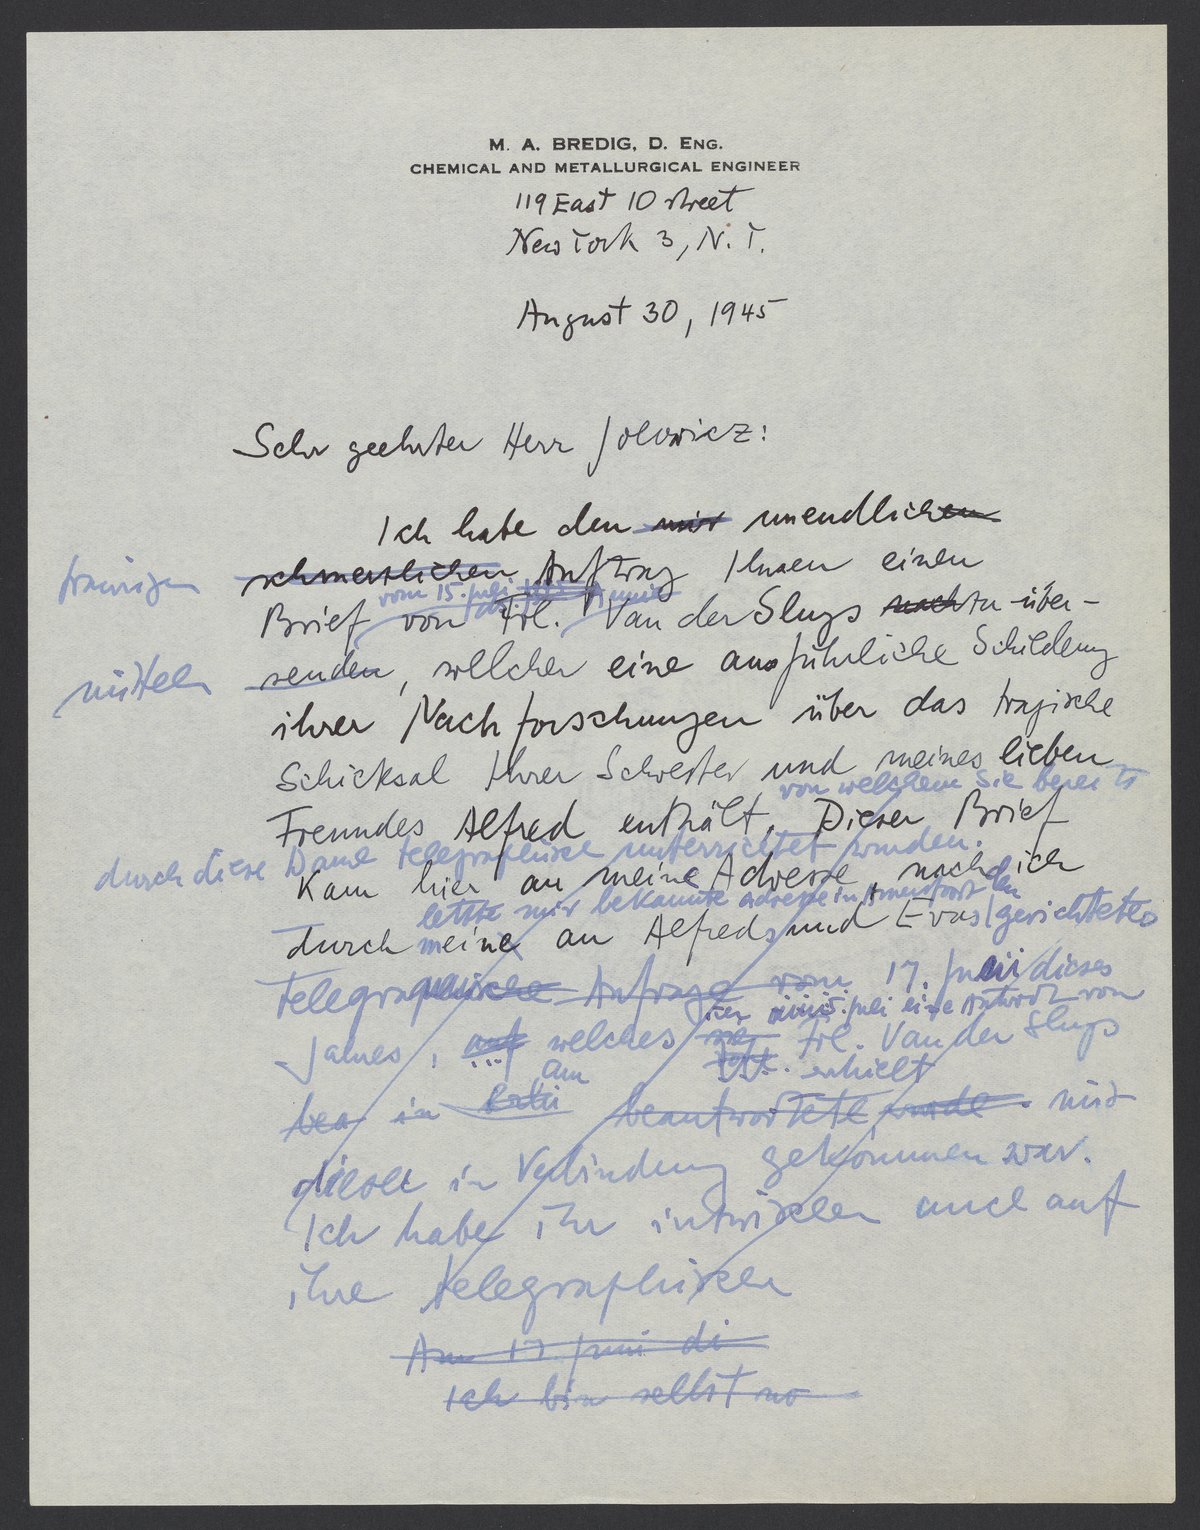 M. A. BREDIG, D. ENG.
CHEMICAL AND METALLURGICAL ENGINEER
119 East 10 street
New York 3, N. Y.
August 30, 1945
Sehr geehrter Herr Jolowicz:
Ich habe den mir unendlichen
traurigen schmerzlichen Auftrag Ihnen einen
vom 15. Juli
Brief von Frl. Van der Sluys nach zu über-
mitteln senden, welcher eine ausführliche Schilderung
ihrer Nachforschungen über das tragische
Schicksal Ihrer Schwester und meines lieben
von welchem Sie bereits
Freundes Alfred enthält. Dieser Brief
durch diese Dame telegraphisch unterrichtet wurden.
kam hier an meine Adresse, nachdem ich
letzte mir bekannte Adresse in
durch meine an Alfreds und Evas gerichtete
telegraphische Anfrage vom 17. Juni dieses
Juli eine Antwort von
Jahres, auf welches Frl. Van der Sluys
am erhielt
bea in beantwortete wurde. mit
dieser in Verbindung gekommen war.
Ich habe ihr inzwischen auch auf
ihre telegraphischen
Am 17 Juni di
Ich bin selbst no